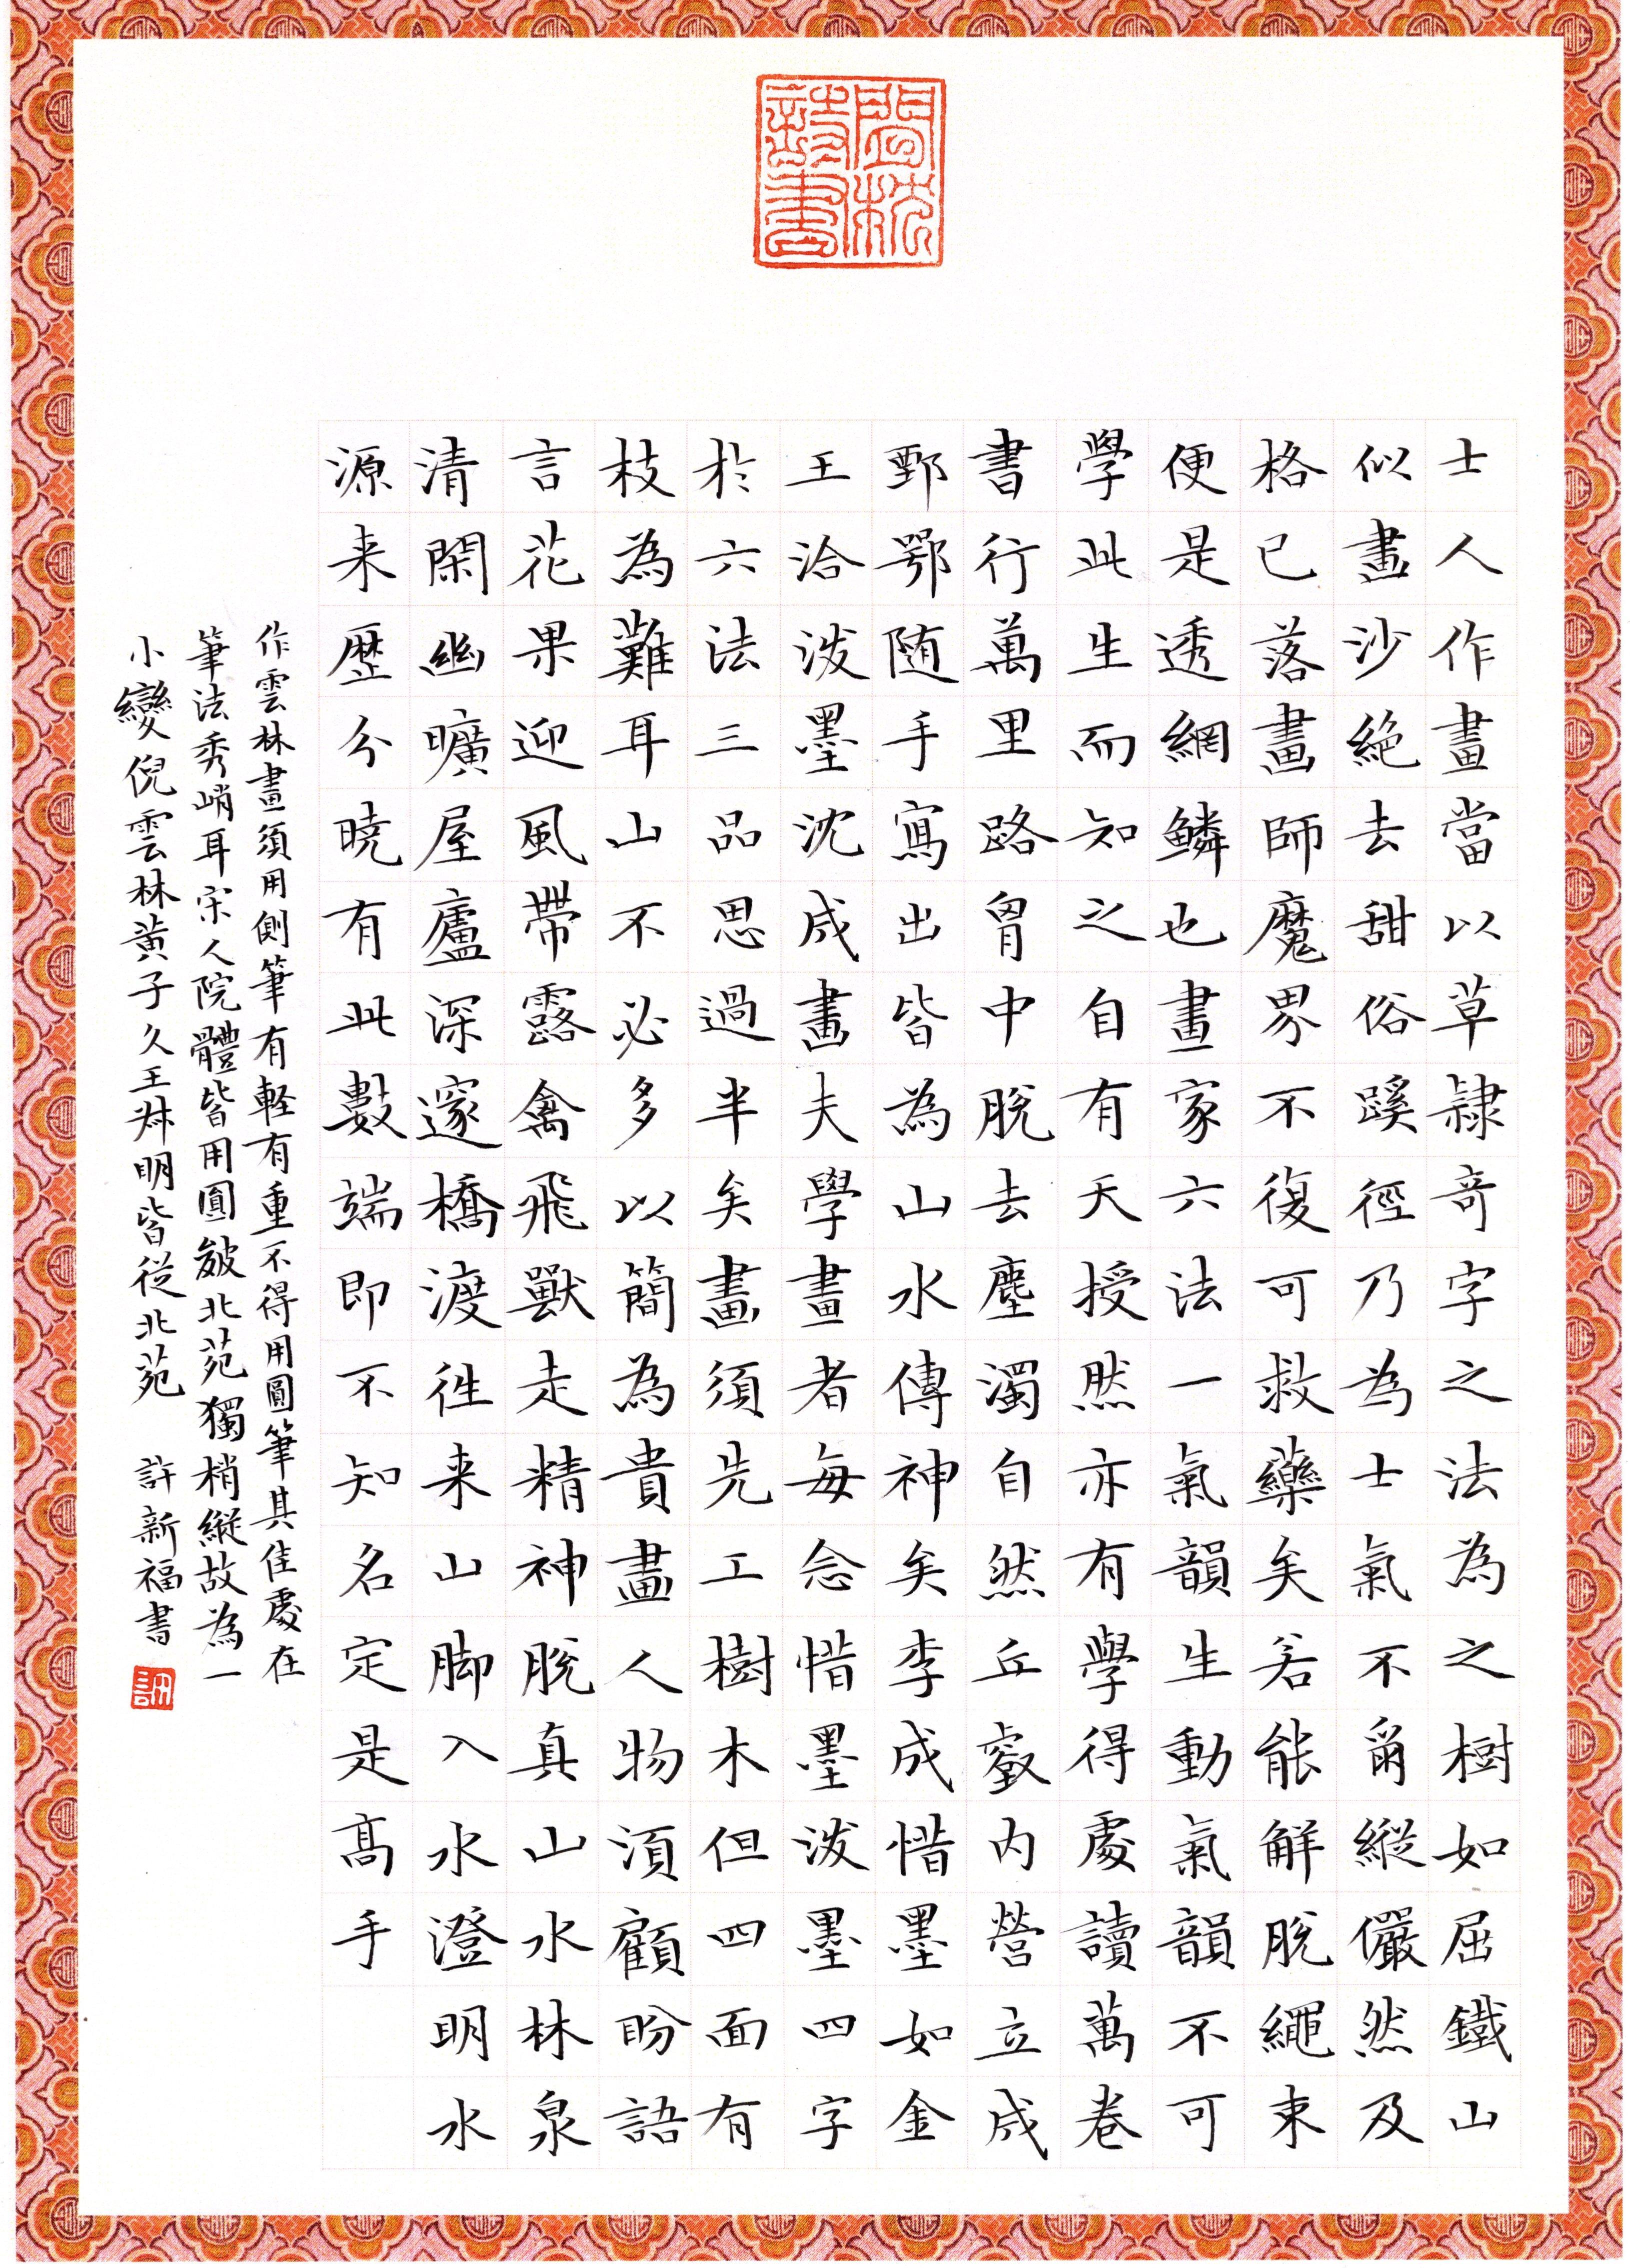 士人作畫當以草隸奇字之法為之樹如屈鐵山
似畫沙絕去甜俗蹊徑乃為士氣不爾縱儼然及
格已落畫師魔界不復可救藥矣若能解脫繩束
便是透網鱗也畫家六法一氣韻生動氣韻不可
學此生而知之自有天授然亦有學得處讀萬卷
書行萬里路胷中脫去塵濁自然丘壑內營立成
鄄鄂随手寫出皆為山水傳神矣李成惜墨如金
王洽泼墨沈成畫夫學畫者每念惜墨泼墨四字
於六法三品思過半矣畫須先工樹木但四面有
枝為難耳山不必多以簡為貴畫人物須顧盼語
言花果迎風帶露禽飛獸走精神脫真山水林泉
清閑幽曠屋廬深邃橋渡往来山脚入水澄明水
源来歷分曉有此數端即不知名定是髙手
作雲林畫須用側筆有軽有重不得用圓筆其佳處在
筆法秀峭耳宋人院體皆用圓皴北苑獨稍縱故為一
小變倪雲林黃子久王叔明皆從北苑 許新福書